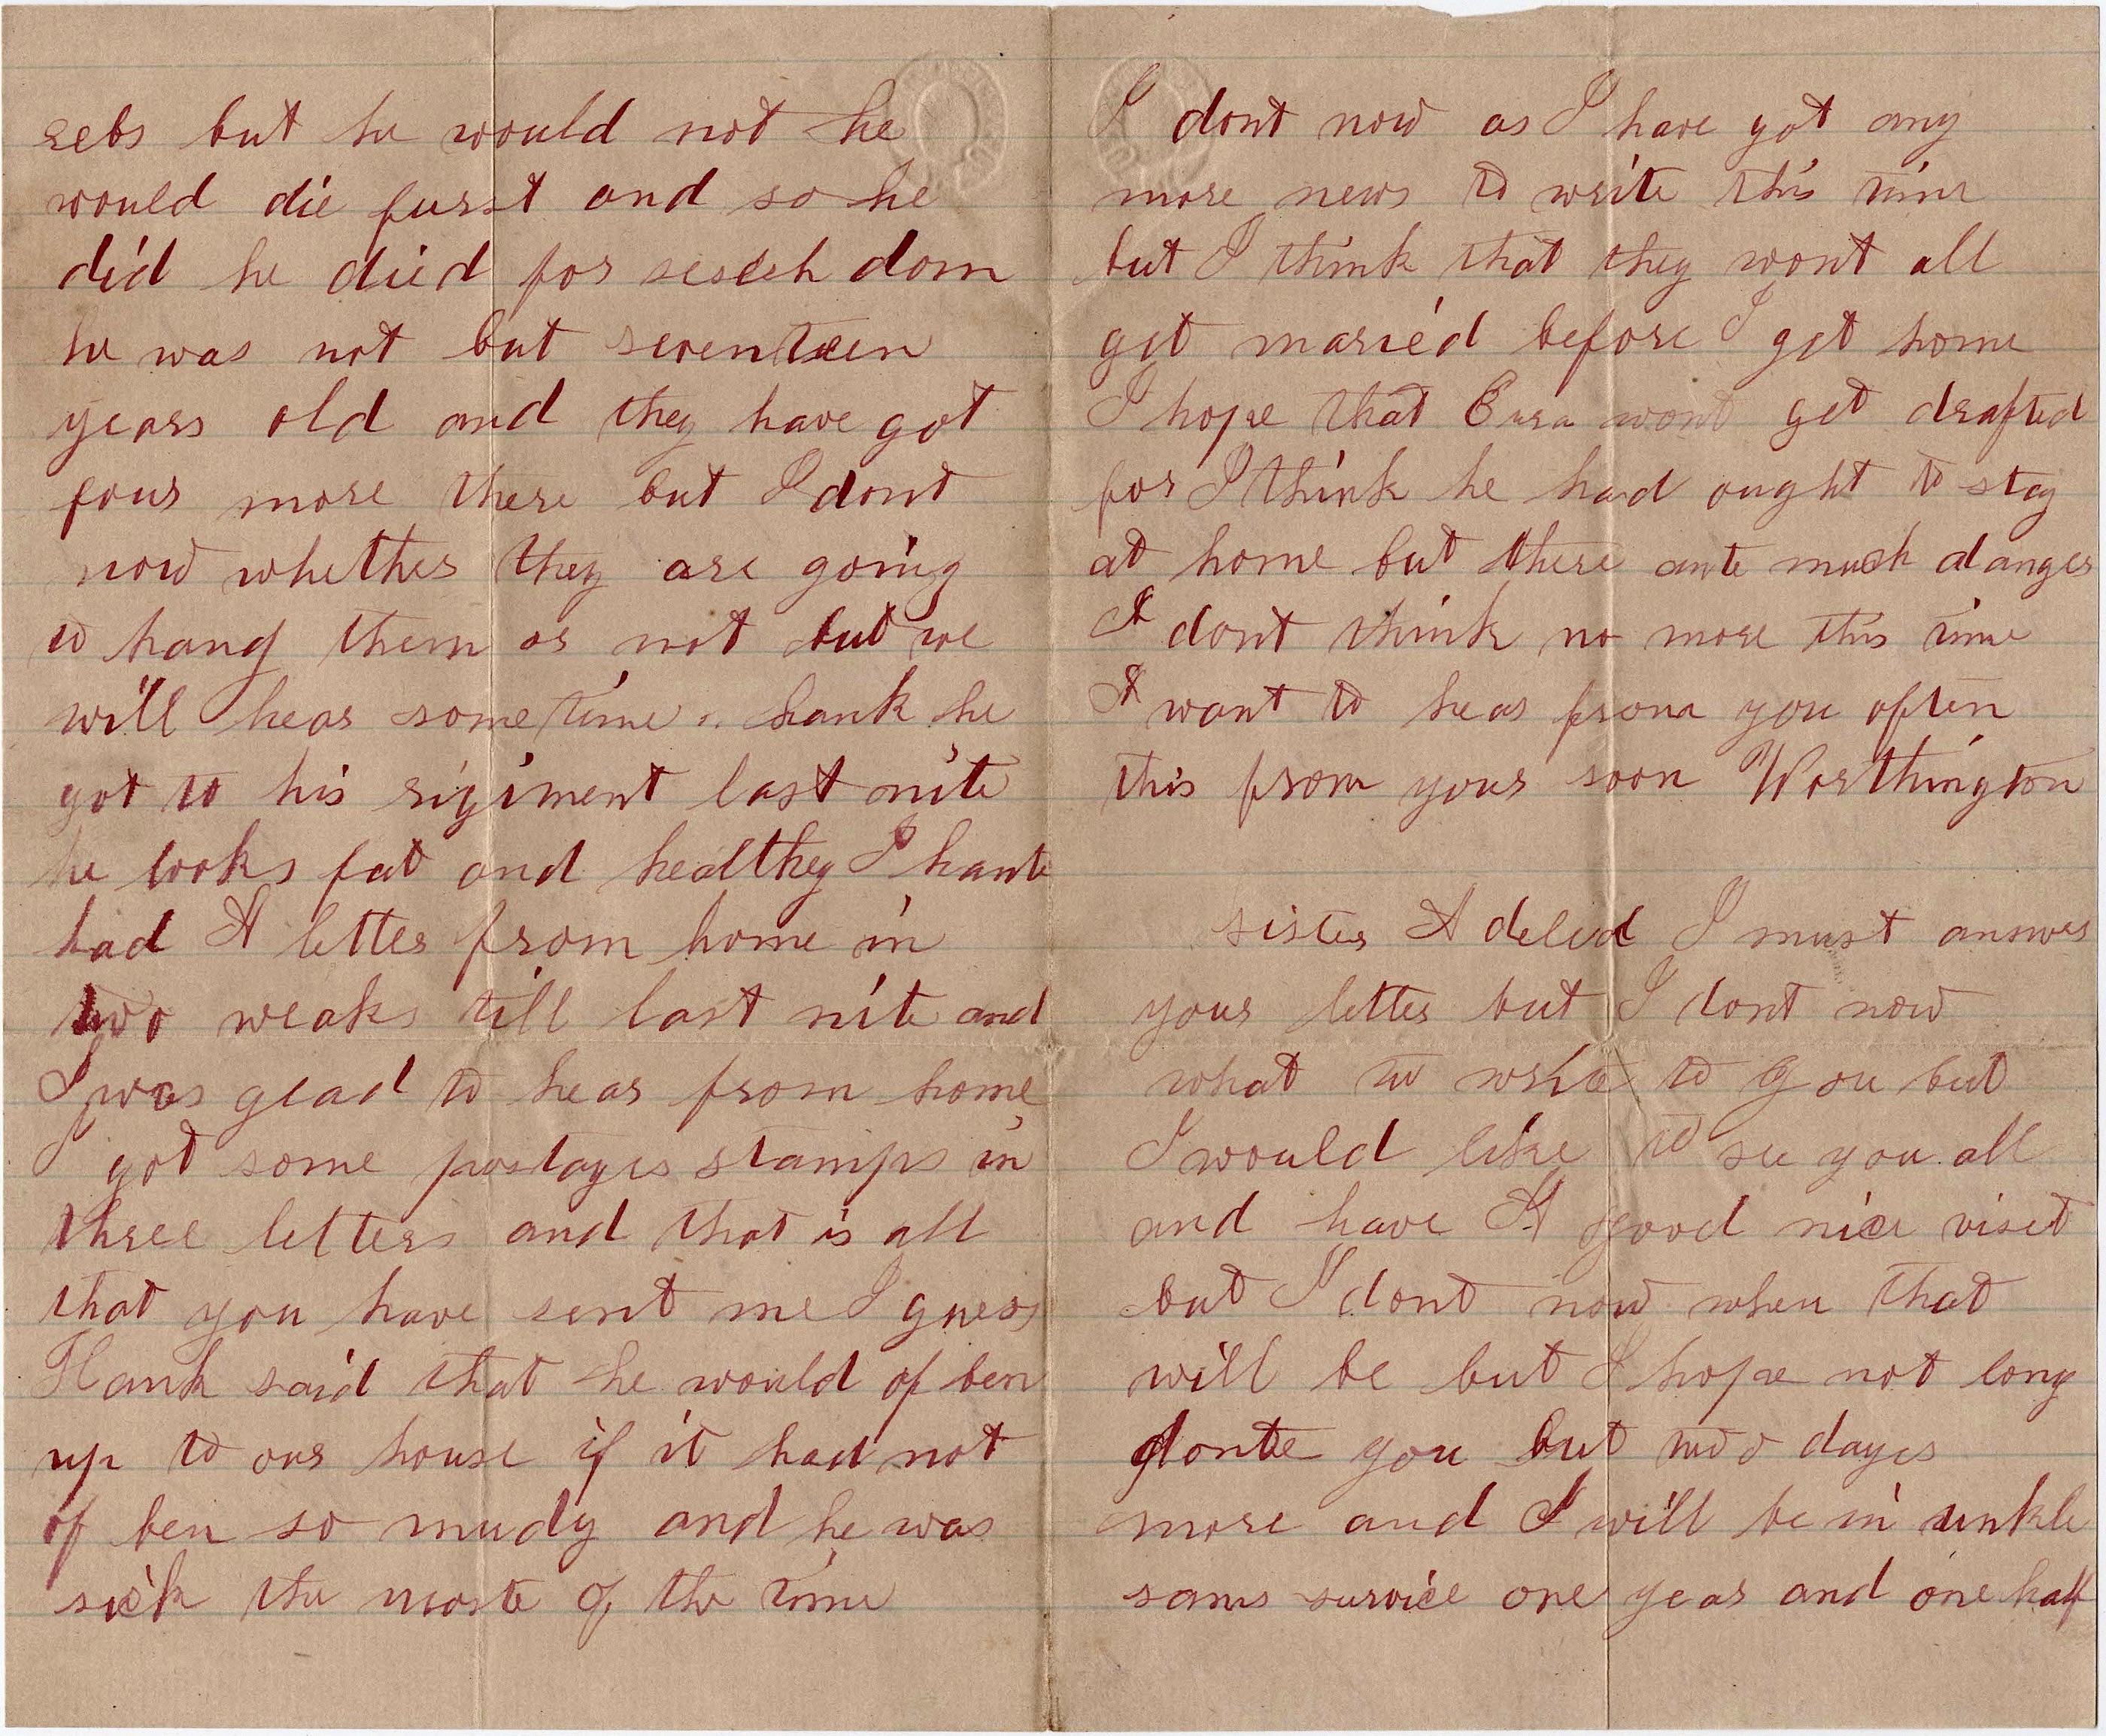 rebs but he would not he
would die furst and so he
did he died for sesech dom
he was not but seventeen
years old and they have got
four more there but I dont
now whether they are going
to hang them or not but we
will hear some time .. hank he
got to his rigiment last nite
he looks fat and healthey I hante
had A letter from home in
two weaks till last nite and
I was glad to hear from home
I got some postages stamps in
three letters and that is all
that you have sent me I guess
Hank said that he would of ben
up to our house if it had not
of ben so mudy and he was
sick the moste of the time
I dont now as I have got any
more news to write this time
but I think that they wont all
get maried before I get home
I hope that Ezra wont get drafted
for I think he had ought to stay
at home but there ante much danger
I dont think no more this time
I want to hear from you often
this from your soon Worthington
sister Adelied I must answer
your letter but I dont now
what to write to you but
I would like to see you all
and have A good nice viset
but I dont now when that
will be but I hope not long
donte you but two dayes
more and I will be in unkle
sams survice one year and one half